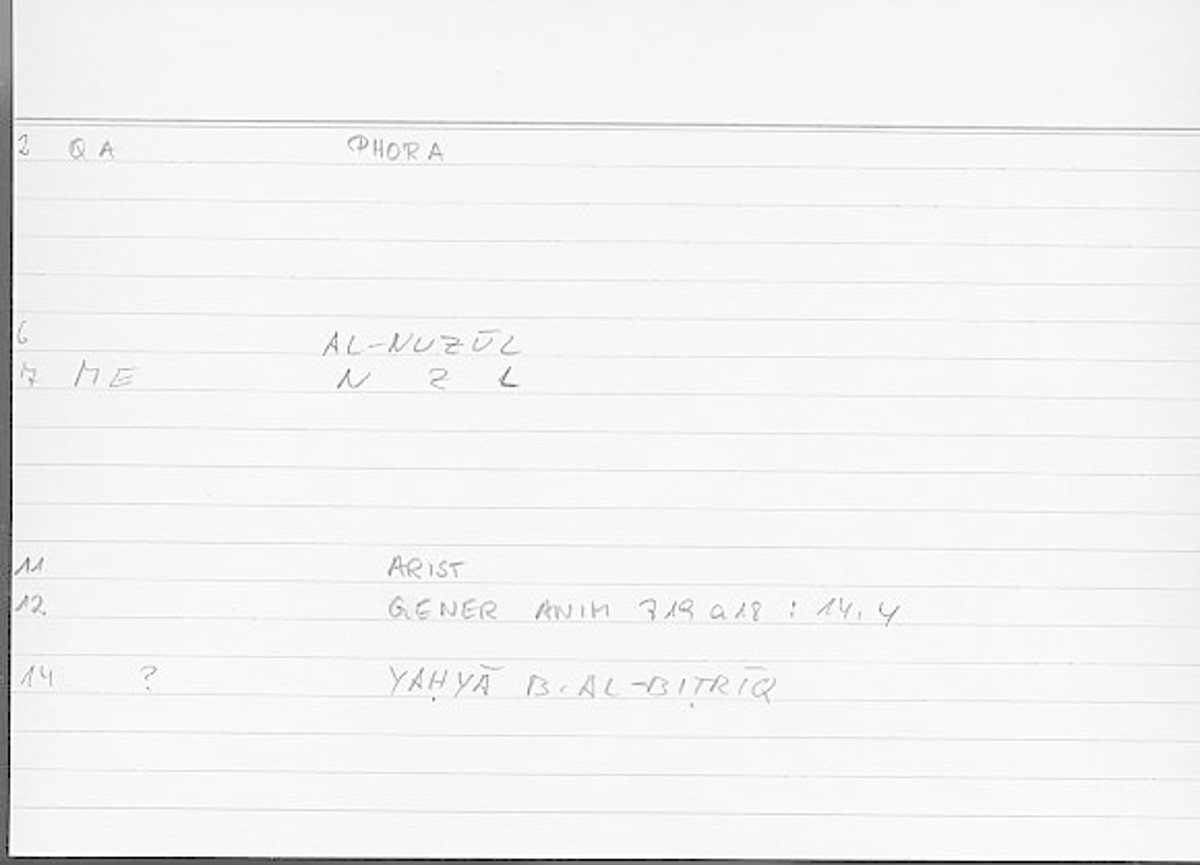 2 QA PHORA
6 AL-NUZŪL
7 ME N Z L
11 ARIST
12. GENER ANIM 719a18 : 14.4
14 ? YAḤYĀ B. AL-BIṬRĪQ